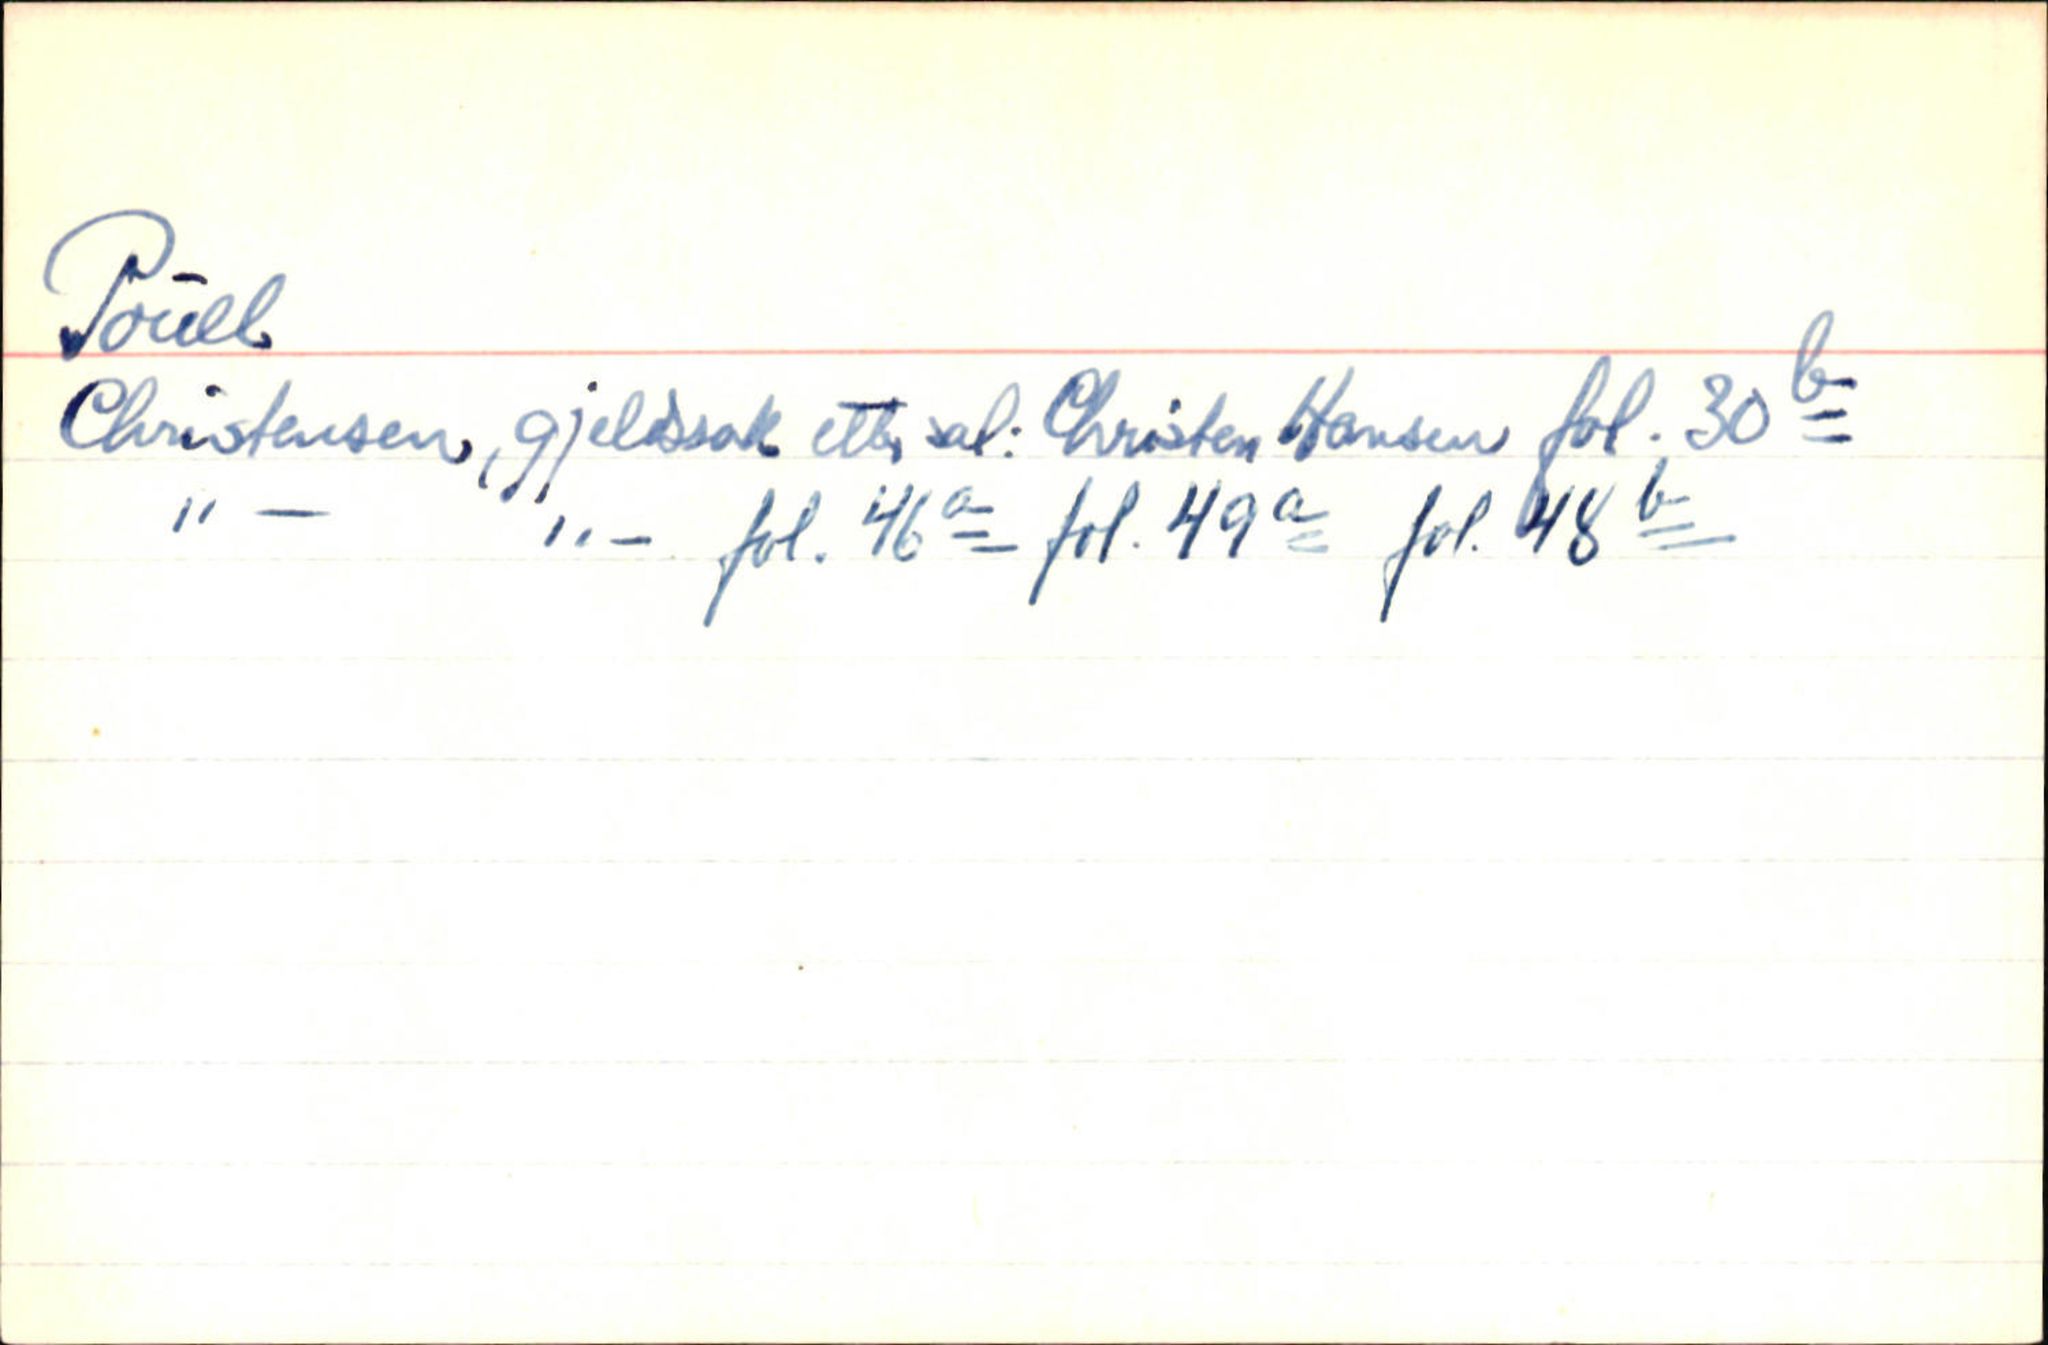 Pouell
Christensen, gjeldssak etter sal: Christen Hansen fol. 30 b
" – " – fol. 46 a fol. 49 a fol. 48 b